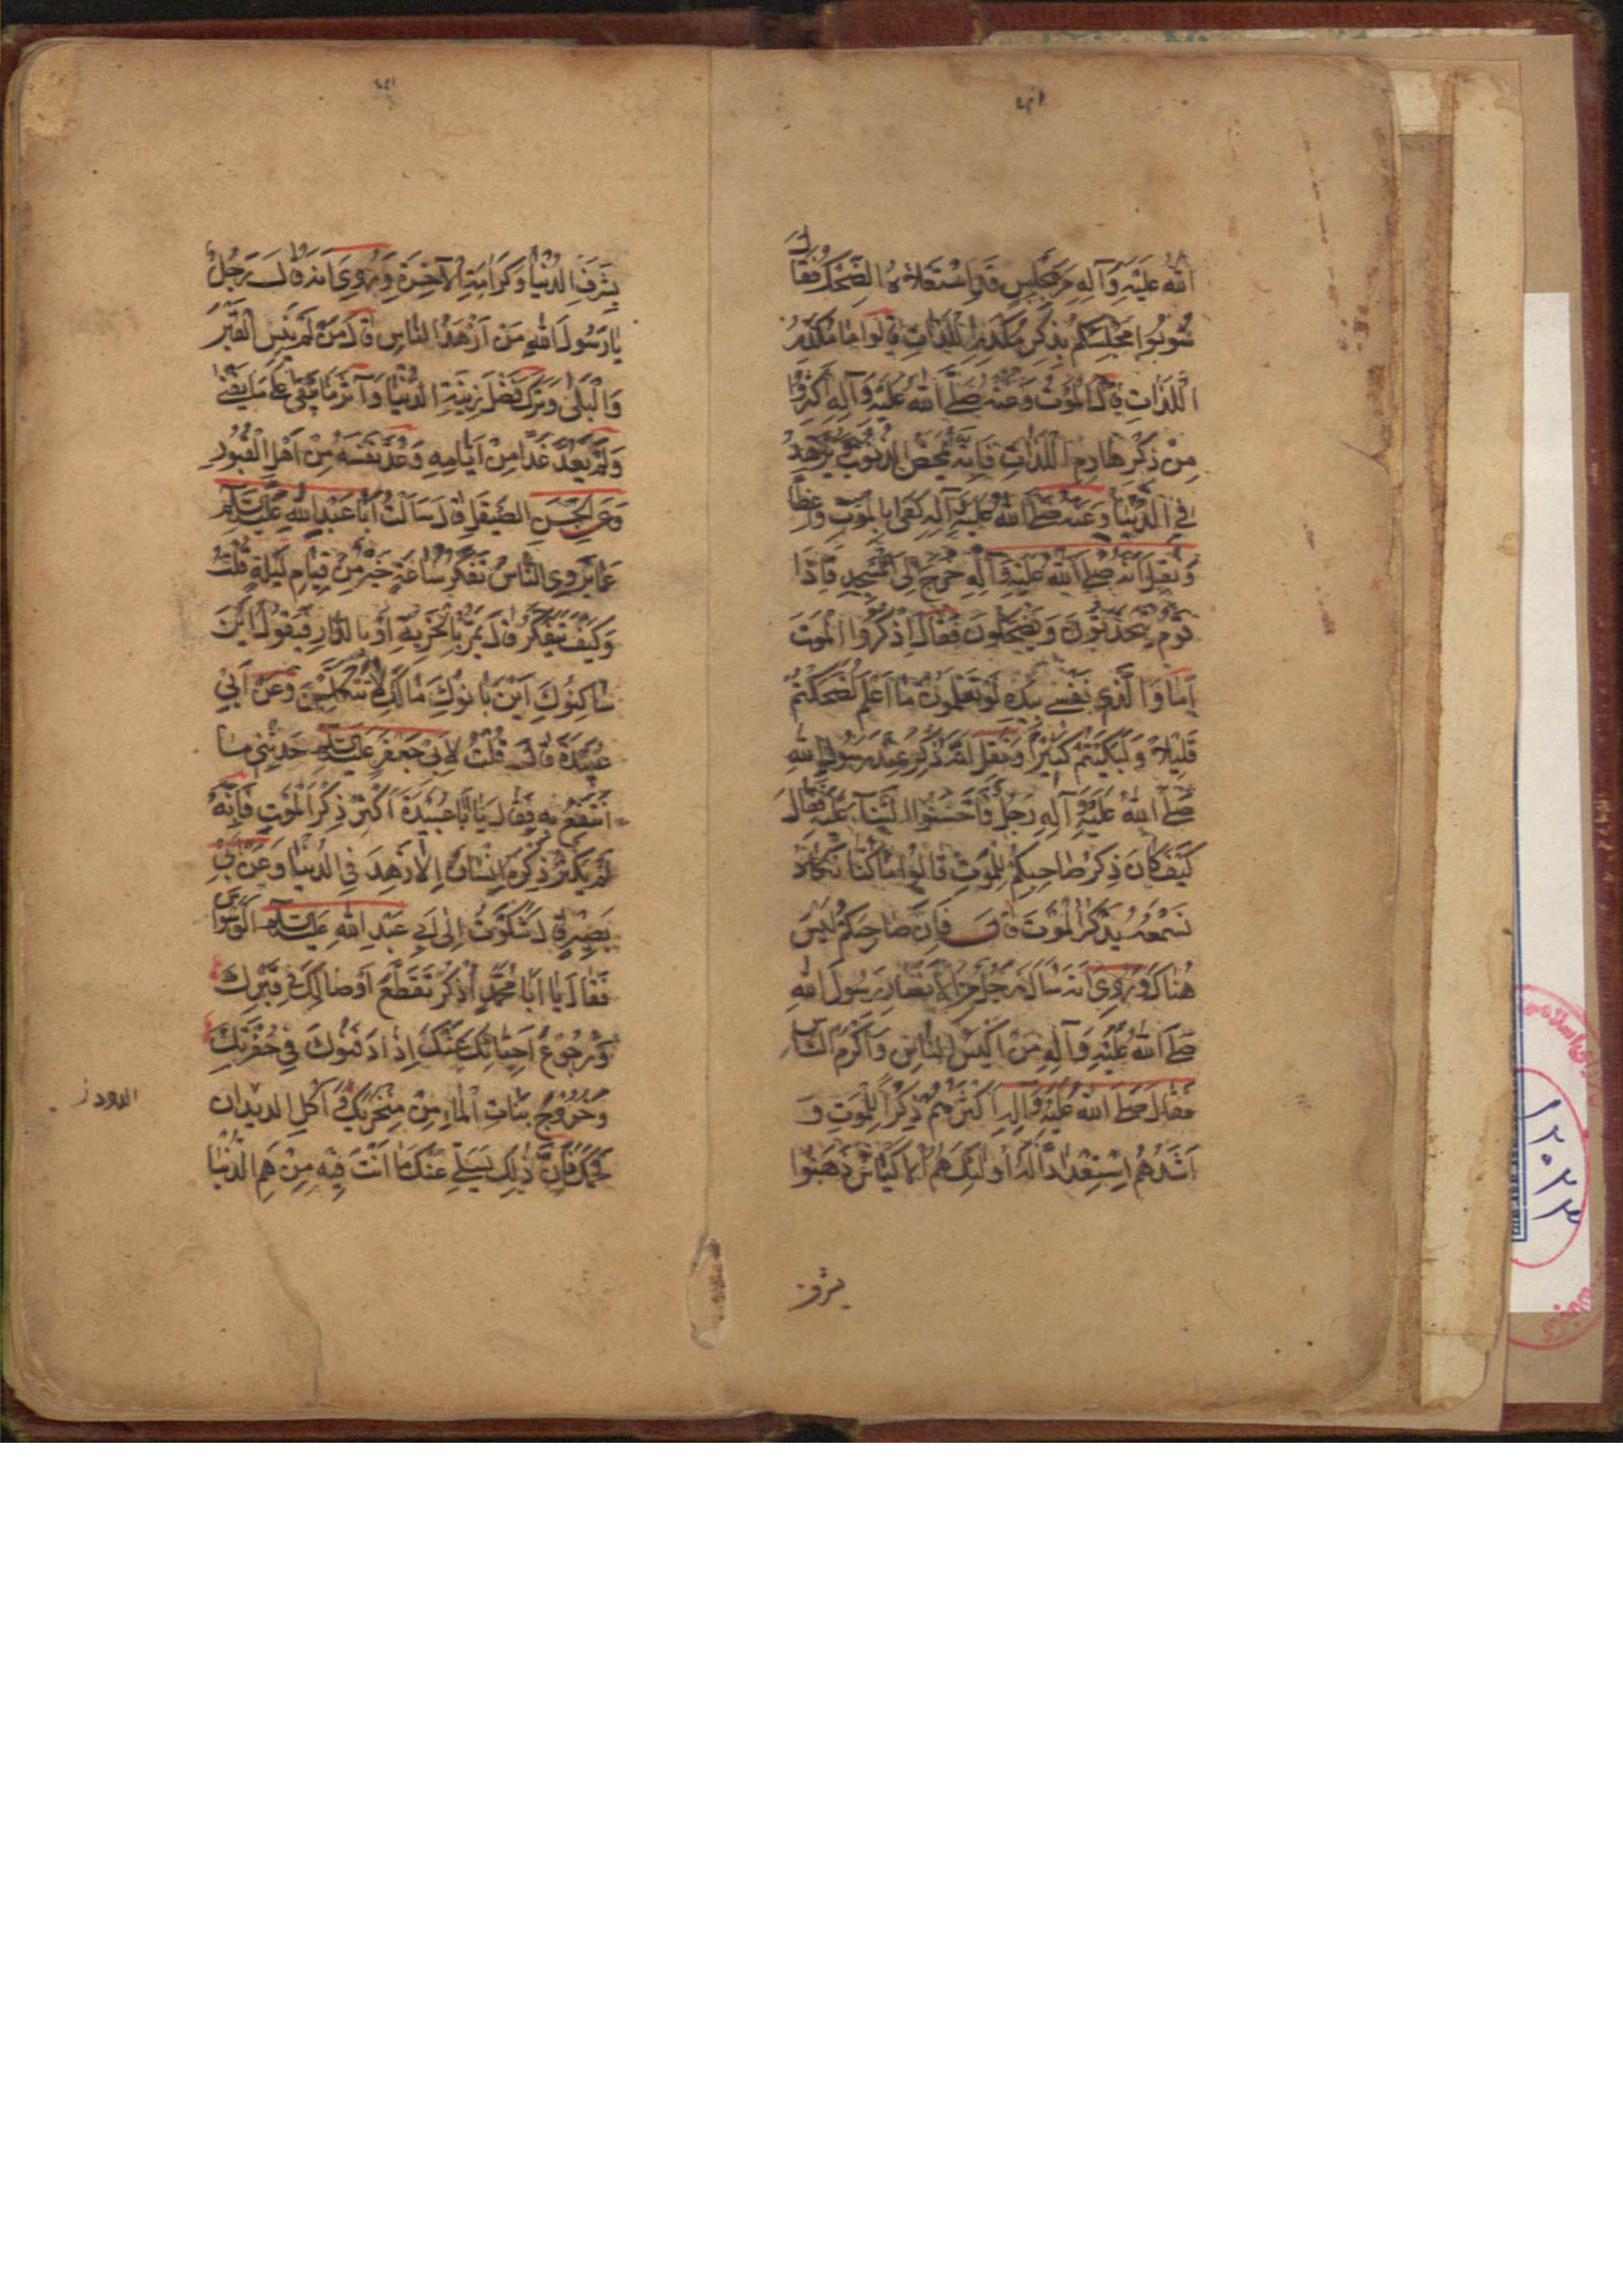 الله عَلَيْهِ وَآلِهِ مَرَّ بِمَجْلِسٍ قَدِ اسْتَعْلَاهُ الضِّحْكُ فَقَالَ
شُوبُوا مَجْلِسَكُمْ بِذِكْرِ مُكَدِّرِ اللَّذَّاتِ قَالُوا مَا مُكَدِّرُ
اللَّذَّاتِ قَالَ الْمَوْتُ وَعَنْهُ صَلَّى اللهُ عَلَيْهِ وَآلِهِ أَكْثِرُوا
مِنْ ذِكْرِ هَادِمِ اللَّذَّاتِ فَإِنَّهُ يُمَحِّصُ الذُّنُوبَ وَيُزَهِّدُ
فِي الدُّنْيَا وَعَنْهُ صَلَّى اللهُ عَلَيْهِ وَآلِهِ كَفَى بِالْمَوْتِ وَاعِظًا
وَنُقِلَ أَنَّهُ صَلَّى اللهُ عَلَيْهِ وَآلِهِ خَرَجَ إِلَى الْمَسْجِدِ فَإِذَا
قَوْمٌ يَتَحَدَّثُونَ وَيَضْحَكُونَ فَقَالَ اذْكُرُوا الْمَوْتَ
أَمَا وَالَّذِي نَفْسِي بِيَدِهِ لَوْ تَعْلَمُونَ مَا أَعْلَمُ لَضَحِكْتُمْ
قَلِيلًا وَلَبَكَيْتُمْ كَثِيرًا وَنُقِلَ أَنَّهُ ذُكِرَ عِنْدَ رَسُولِ اللهِ
صَلَّى اللهُ عَلَيْهِ وَآلِهِ رَجُلٌ فَأَحْسَنُوا الثَّنَاءَ عَلَيْهِ فَقَالَ
كَيْفَ كَانَ ذِكْرُ صَاحِبِكُمْ لِلْمَوْتِ قَالُوا مَا كُنَّا نَكَادُ
نَسْمَعُهُ يَذْكُرُ الْمَوْتَ قَالَ فَإِنَّ صَاحِبَكُمْ لَيْسَ
هُنَاكَ وَرُوِيَ أَنَّهُ سَأَلَهُ رَجُلٌ مِنَ الْأَنْصَارِ رَسُولَ اللهِ
صَلَّى اللهُ عَلَيْهِ وَآلِهِ مَنْ أَكْيَسُ النَّاسِ وَأَكْرَمُ النَّاسِ
فَقَالَ صَلَّى اللهُ عَلَيْهِ وَآلِهِ أَكْثَرُهُمْ ذِكْرًا لِلْمَوْتِ وَ
أَشَدُّهُمْ اسْتِعْدَادًا لَهُ أُولَئِكَ هُمُ الْأَكْيَاسُ ذَهَبُوا
بشرف
بِشَرَفِ الدُّنْيَا وَكَرَامَةِ الْآخِرَةِ وَرُوِيَ أَنَّهُ قَالَ رَجُلٌ
يَا رَسُولَ اللهِ مَنْ أَزْهَدُ النَّاسِ قَالَ مَنْ لَمْ يَنْسَ الْقَبْرَ
وَالْبِلَى وَتَرَكَ فَضْلَ زِينَةِ الدُّنْيَا وَآثَرَ مَا يَبْقَى عَلَى مَا يَفْنَى
وَلَمْ يَعُدَّ غَدًا مِنْ أَيَّامِهِ وَعَدَّ نَفْسَهُ مِنْ أَهْلِ الْقُبُورِ
وَعَنِ الْحَسَنِ الصَّيْقَلِ قَالَ سَأَلْتُ أَبَا عَبْدِ اللهِ عَلَيْهِ السَّلَامُ
عَمَّا يَرْوِي النَّاسُ تَفَكُّرُ سَاعَةٍ خَيْرٌ مِنْ قِيَامِ لَيْلَةٍ قُلْتُ
وَكَيْفَ يَتَفَكَّرُ قَالَ يَمُرُّ بِالْخَرِبَةِ أَوْ بِالدَّارِ فَيَقُولُ أَيْنَ
سَاكِنُوكِ أَيْنَ بَانُوكِ مَا لَكِ لَا تَتَكَلَّمِينَ وَعَنْ أَبِي
عُبَيْدَةَ قَالَ قُلْتُ لِأَبِي جَعْفَرٍ عَلَيْهِ السَّلَامُ حَدِّثْنِي مَا
أَنْتَفِعُ بِهِ فَقَالَ يَا أَبَا عُبَيْدَةَ أَكْثِرْ ذِكْرَ الْمَوْتِ فَإِنَّهُ
لَمْ يُكْثِرْ ذِكْرَهُ إِنْسَانٌ إِلَّا زَهِدَ فِي الدُّنْيَا وَعَنْ أَبِي
بَصِيرٍ قَالَ شَكَوْتُ إِلَى أَبِي عَبْدِ اللهِ عَلَيْهِ السَّلَامُ الْوَسْوَاسَ
فَقَالَ يَا أَبَا مُحَمَّدٍ اذْكُرْ تَقَطُّعَ أَوْصَالِكَ فِي قَبْرِكَ
وَرُجُوعَ أَحِبَّائِكَ عَنْكَ إِذَا دَفَنُوكَ فِي حُفْرَتِكَ
وَخُرُوجَ بَنَاتِ الْمَاءِ مِنْ مَنْخِرَيْكَ وَأَكْلَ الدِّيدَانِ
الدود ز
لَحْمَكَ فَإِنَّ ذَلِكَ يُسَلِّي عَنْكَ مَا أَنْتَ فِيهِ مِنْ هَمِّ الدُّنْيَا
١٢٠٢٣